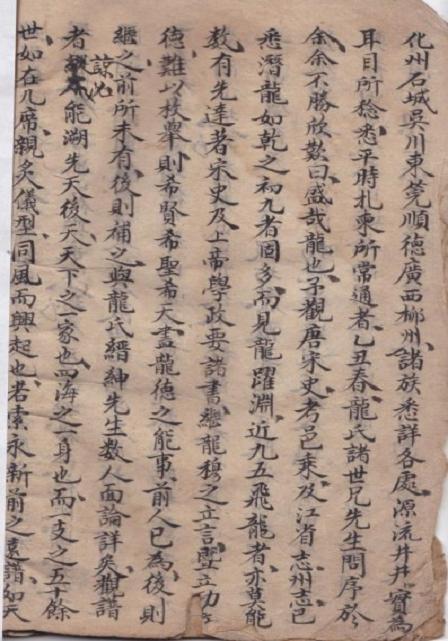 化州石城吳川東莞順德廣西柳州諸族悉詳各處源流井井實為
耳目所稔悉平時札東所常通者乙丑春龍氏諸世兄先生問序於
余余不勝欣歎曰盛哉龍也予觀唐宋史考邑乘及江省志州志已
悉潛龍如乾之初九者固多而見龍躍淵近九五飛龍者亦莫能
数有先達著宋史及上帝學政要諸書總龍穆之立言豐立功
德難以枚舉則希賢希聖希天盡龍德之能事前人已為後則
繼之前所未有後則補之與龍氏縉紳先生数人面論詳矣觀譜
者諒必能溯先天後天天下之一家也四海之一身也而支之五十餘
世如在几席親炙儀型同風而興起也若索永新前之遠譜如天